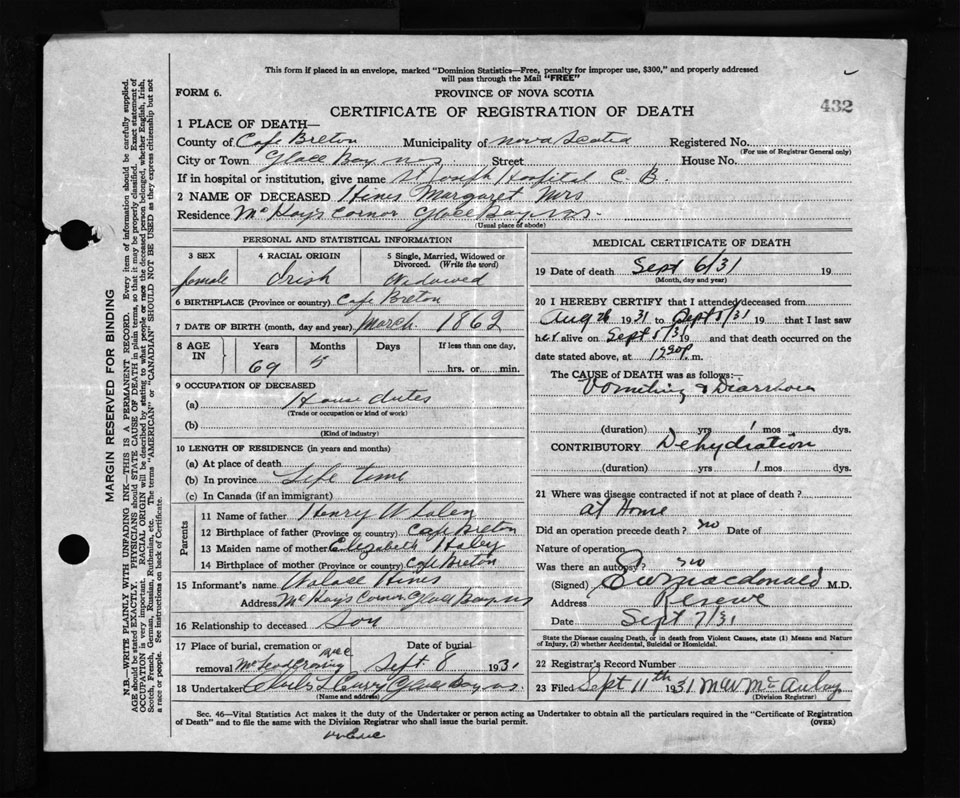 This form if placed in an envelope, marked "Dominion Statistics—Free, penalty for improper use, $300," and properly addressed
will pass through the Mail "FREE"
FORM 6.
PROVINCE OF NOVA SCOTIA
432
CERTIFICATE OF REGISTRATION OF DEATH
1 PLACE OF DEATH—
County of Cape Breton Municipality of Nova Scotia Registered No.
(For use of Registrar General only)
City or Town Glace Bay N.S. Street House No.
If in hospital or institution, give name St Joseph Hospital C. B.
2 NAME OF DECEASED Hines Margaret Mrs
Residence McKays Corner Glace Bay N.S.
(Usual place of abode)
PERSONAL AND STATISTICAL INFORMATION
3 SEX 4 RACIAL ORIGIN 5 Single, Married, Widowed or
Divorced. (Write the word)
female Irish Widowed
6 BIRTHPLACE (Province or country) Cape Breton
7 DATE OF BIRTH (month, day and year) March 1862
8 AGE IN Years Months Days If less than one day,
69 5 hrs. or min.
9 OCCUPATION OF DECEASED
(a) House duties
(Trade or occupation or kind of work)
(b)
(Kind of industry)
10 LENGTH OF RESIDENCE (in years and months)
(a) At place of death
(b) In province Life time
(c) In Canada (if an immigrant)
Parents
11 Name of father Henry Whalen
12 Birthplace of father (Province or country) Cape Breton
13 Maiden name of mother Elizibeth Haley
14 Birthplace of mother (Province or country) Cape Breton
15 Informant's name Walase Hines
Address McKays Corner Glace Bay N.S.
16 Relationship to deceased Son
17 Place of burial, cremation or Date of burial
removal McLeod Crossing Sept 8 1931
18 Undertaker Curry Glace Bay N.S.
(Name and address)
MEDICAL CERTIFICATE OF DEATH
19 Date of death Sept 6/31 19
(Month, day and year)
20 I HEREBY CERTIFY that I attended deceased from
Aug 26 1931 to Sept 5/31 19 that I last saw
her alive on Sept 5/31 19 and that death occurred on the
date stated above, at m.
The CAUSE of DEATH was as follows:—
Vomiting & Diarrhoea
(duration) yrs 1 mos dys.
CONTRIBUTORY Dehydration
(duration) yrs 1 mos dys.
21 Where was disease contracted if not at place of death?
at Home
Did an operation precede death? no Date of
Nature of operation
Was there an autopsy? no
(Signed) Macdonald M.D.
Address Reserve
Date Sept 7/31
State the Disease causing Death, or in death from Violent Causes, state (1) Means and Nature
of Injury, (2) whether Accidental, Suicidal or Homicidal.
22 Registrar's Record Number
23 Filed Sept 11th 1931 M W McAulay
(Division Registrar)
Sec. 46—Vital Statistics Act makes it the duty of the Undertaker or person acting as Undertaker to obtain all the particulars required in the "Certificate of Registration
of Death" and to file the same with the Division Registrar who shall issue the burial permit.
(OVER)
MARGIN RESERVED FOR BINDING
N.B.—WRITE PLAINLY WITH UNFADING INK—THIS IS A PERMANENT RECORD. Every item of information should be carefully supplied.
AGE should be stated EXACTLY. PHYSICIANS should STATE CAUSE OF DEATH in plain terms, so that it may be properly classified. Exact statement of
OCCUPATION is very important. RACIAL ORIGIN will be described by stating to what people or race the deceased person belonged, whether English, Irish,
Scotch, French, German, Russian, Ruthenian, etc. The terms "AMERICAN" or "CANADIAN" SHOULD NOT BE USED as they express citizenship but not
a race or people. See instructions on back of Certificate.